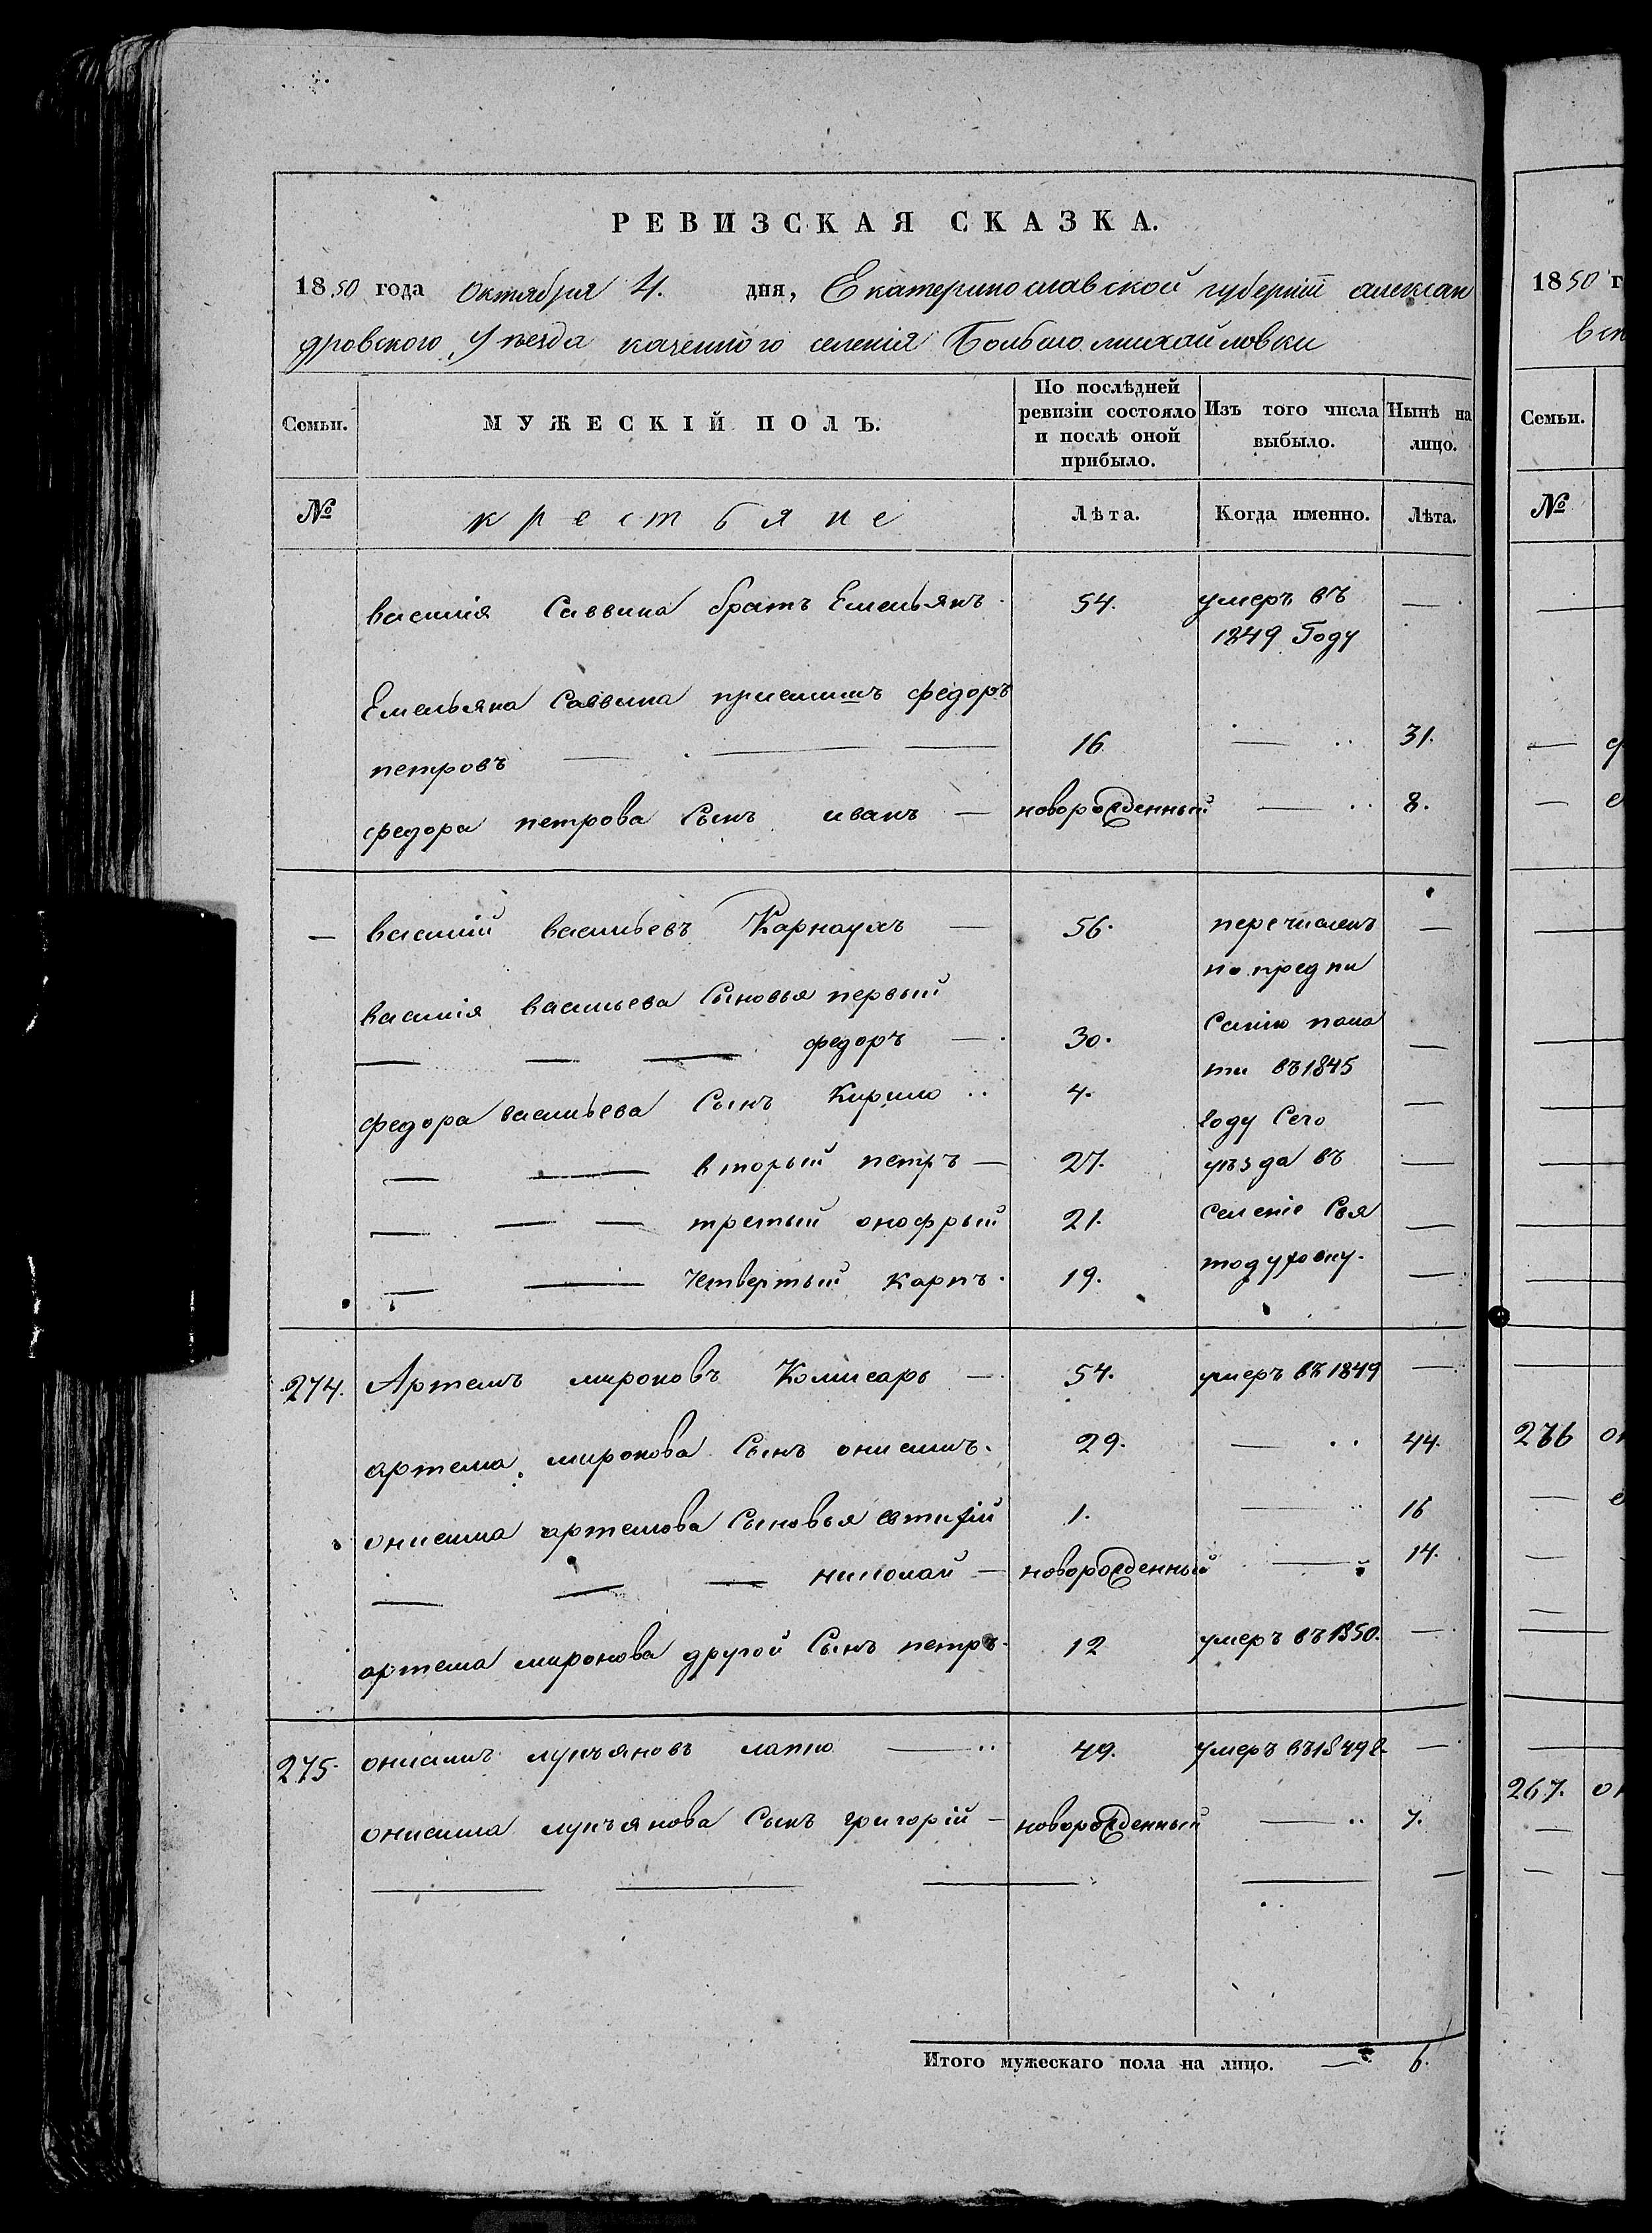 РЕВИЗСКАЯ СКАЗКА.
1850 года Октября 4. дня, Екатеринославской губернии алексан
дровского Уезда казенного селенія Больбшомихайловки
Семьи. МУЖЕСКІЙ ПОЛЪ. По послѣдней ревизіи состояло и послѣ оной прибыло. Изъ того числа выбыло. Нынѣ на лицо.
№ крестьяне Лѣта. Когда именно. Лѣта.
василія Саввина братъ Емельянъ 54. умеръ въ —
1849 Году
Емельяна Саввина приемышъ федоръ
петровъ — 16 — 31.
федора петрова Сынъ иванъ — новорожденный — 8.
— василий васильевъ Карнаухъ — 56. перечисленъ —
по предпи
василія васильева Сыновья первый
Санію пала
— — — федоръ — 30. —
ты въ 1845
федора васильева Сынъ Кирило 4. —
году Сего
— — вторый петръ — 27. уѣзда въ —
— — — третый онофрый 21. селеніе Свя
— — четвертый карпъ 19. тодуховку. —
274. Артемъ мироновъ Комисаръ — 54. умеръ въ 1849 —
артема миронова Сынъ онисимъ. 29. — 44.
онисима артемова Сыновья евтихій 1. — 16
— — — николай — новорожденный — 14.
артема миронова другой Сынъ петръ 12 умеръ въ 1850. —
275. онисимъ лукъяновъ лапко — 49. умеръ въ 1849г. —
онисима лукъянова Сынъ григорій — новорожденный — 7.
Итого мужескаго пола на лицо. — 6.
1850 г
Семьи.
№
276 он
267. он